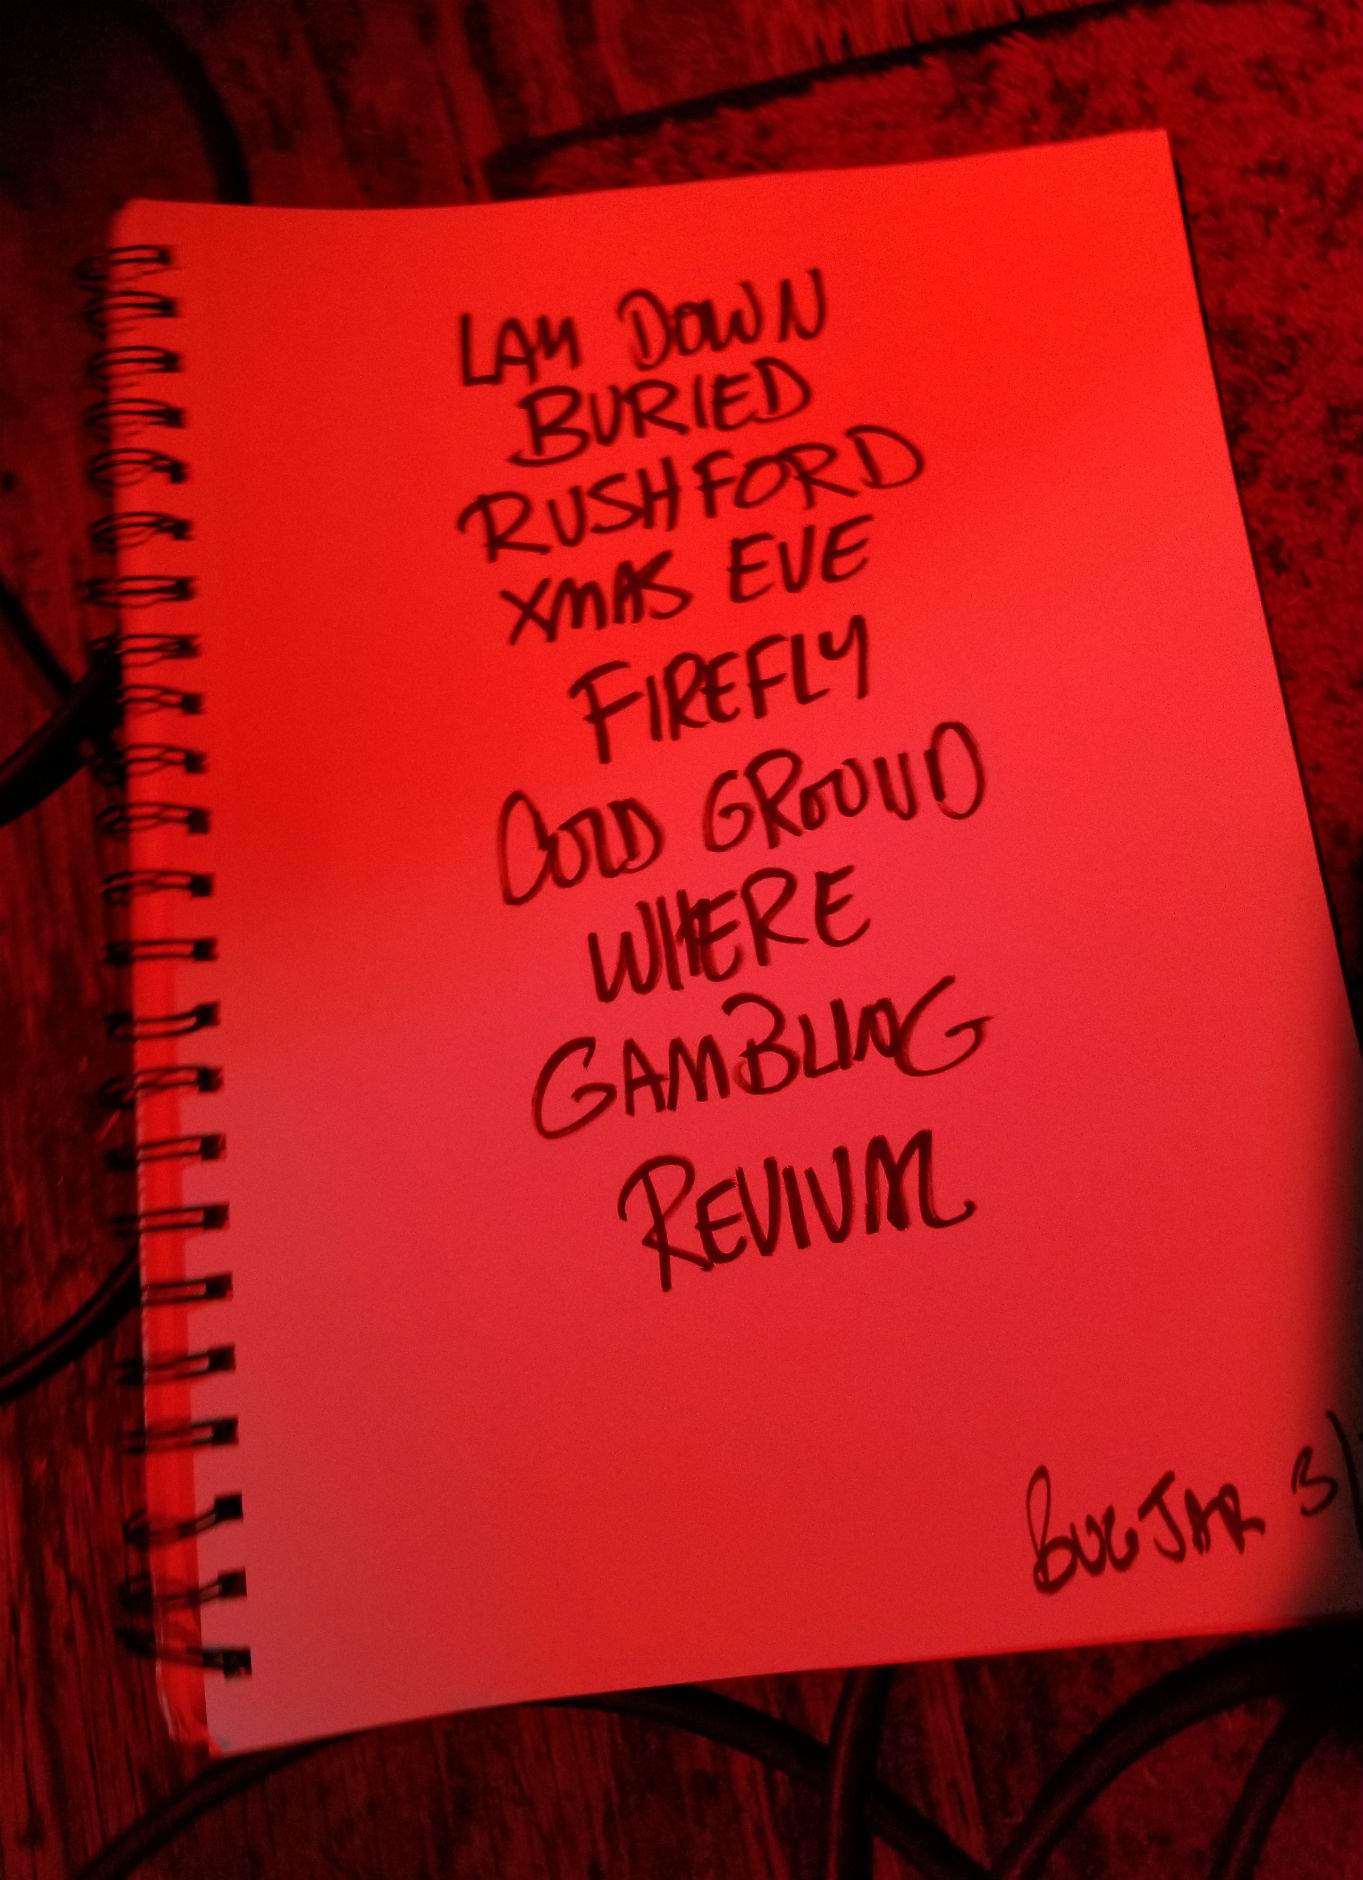 LAY DOWN
BURIED
RUSHFORD
XMAS EVE
FIREFLY
COLD GROUND
WHERE
GAMBLING
REVIVAL
BUG JAR 3/